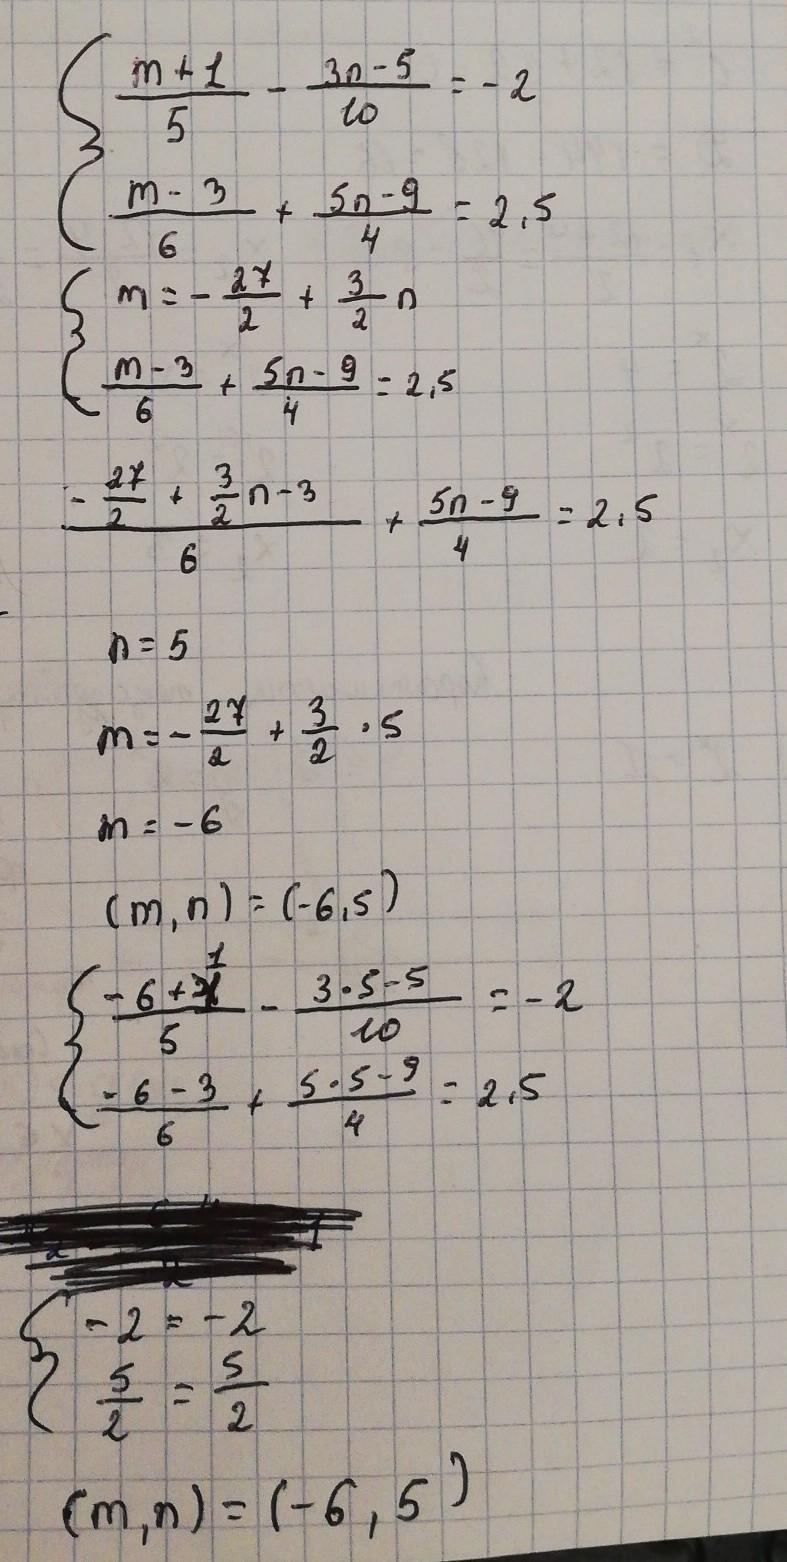 { (m+1)/5 - (3n-5)/10 = -2
(m-3)/6 + (5n-9)/4 = 2,5
{ m = -27/2 + 3/2 n
(m-3)/6 + (5n-9)/4 = 2,5
(-27/2 + 3/2 n-3)/6 + (5n-9)/4 = 2,5
n = 5
m = -27/2 + 3/2 · 5
m = -6
(m,n) = (-6,5)
{ (-6+1)/5 - (3·5-5)/10 = -2
(-6-3)/6 + (5·5-9)/4 = 2,5
{ -2 = -2
5/2 = 5/2
(m,n) = (-6,5)